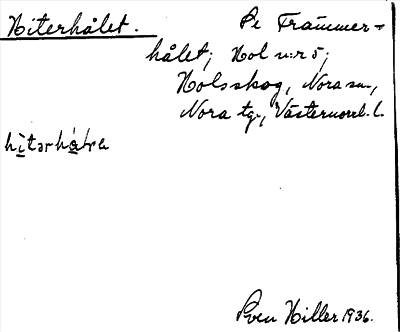 Hiterhålet. Se Frammer-
hålet; Hol n:r 5;
Holsskog, Nora sn.,
Nora tg., Västernorrl. l.
hìtərhɑ̀ɫɛ
Sven Hiller 1936.